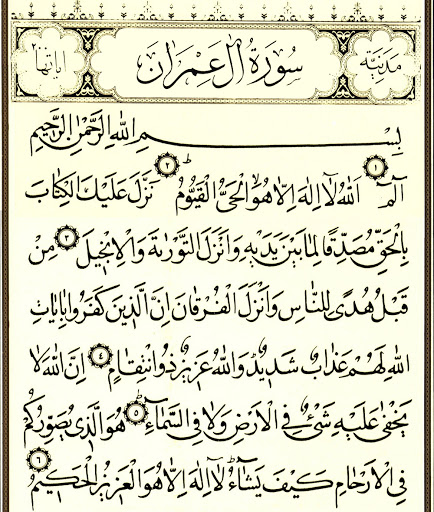 مدنية سورة آل عمران اياتها ٢٠٠
بسم الله الرحمن الرحيم
الم ﴿١﴾ الله لا اله الا هو الحي القيوم ﴿٢﴾ نزل عليك الكتاب
بالحق مصدقا لما بين يديه وانزل التورية والانجيل ﴿٣﴾ من
قبل هدى للناس وانزل الفرقان ان الذين كفروا بايات
الله لهم عذاب شديد والله عزيز ذو انتقام ﴿٤﴾ ان الله لا
يخفى عليه شئ في الارض ولا في السماء ﴿٥﴾ هو الذي يصوركم
في الارحام كيف يشاء لا اله الا هو العزيز الحكيم ﴿٦﴾